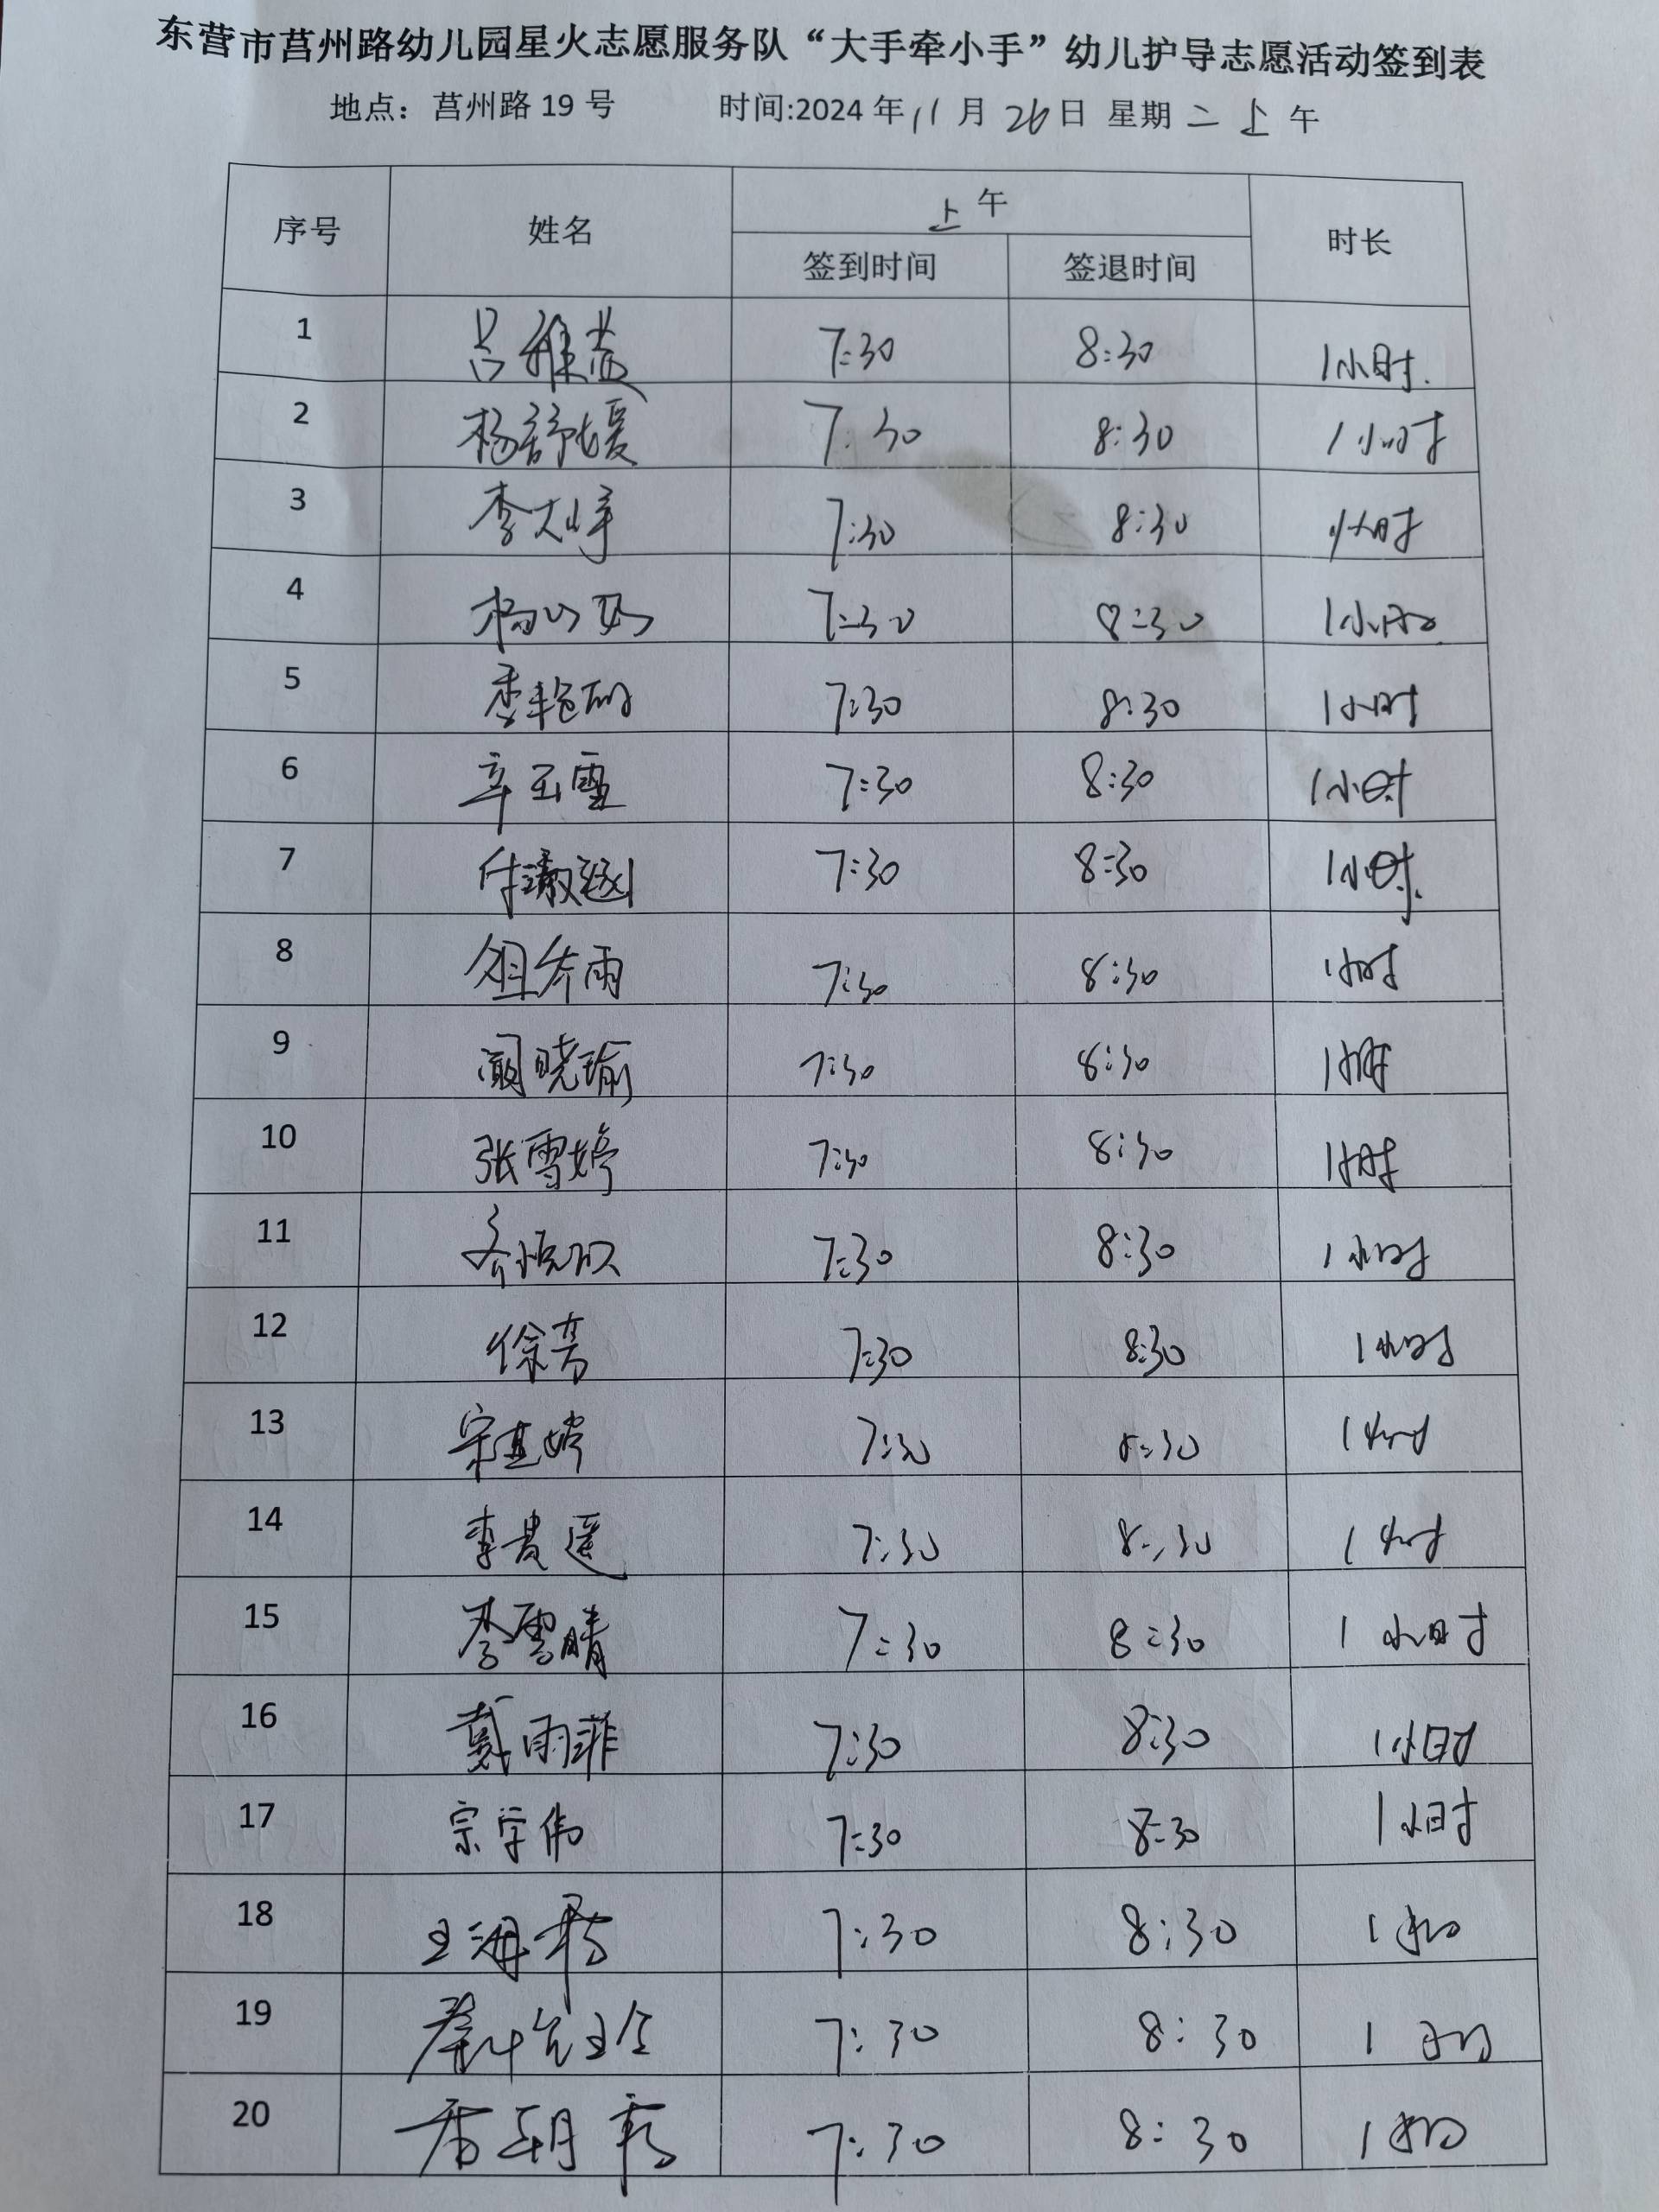 东营市莒州路幼儿园星火志愿服务队“大手牵小手”幼儿护导志愿活动签到表
地点：莒州路 19 号 时间:2024 年 11 月 26 日 星期 二 上 午
序号 姓名 上 午 时长
签到时间 签退时间
1 吕雅益 7:30 8:30 1小时.
2 杨舒媛 7:30 8:30 1小时
3 李大峰 7:30 8:30 1小时
4 杨 7:30 8:30 1小时
5 李艳丽 7:30 8:30 1小时
6 辛玉雪 7:30 8:30 1小时
7 付 7:30 8:30 1小时.
8 俎乔雨 7:30 8:30 1小时
9 阚晓瑜 7:30 8:30 1小时
10 张雪婷 7:30 8:30 1小时
11 7:30 8:30 1小时
12 徐芳 7:30 8:30 1小时
13 宋孟婷 7:30 8:30 1小时
14 李贵遥 7:30 8:30 1小时
15 李雪晴 7:30 8:30 1小时
16 戴雨菲 7:30 8:30 1小时
17 宗学伟 7:30 8:30 1小时
18 王海 7:30 8:30 1小时
19 7:30 8:30 1小时
20 7:30 8:30 1小时